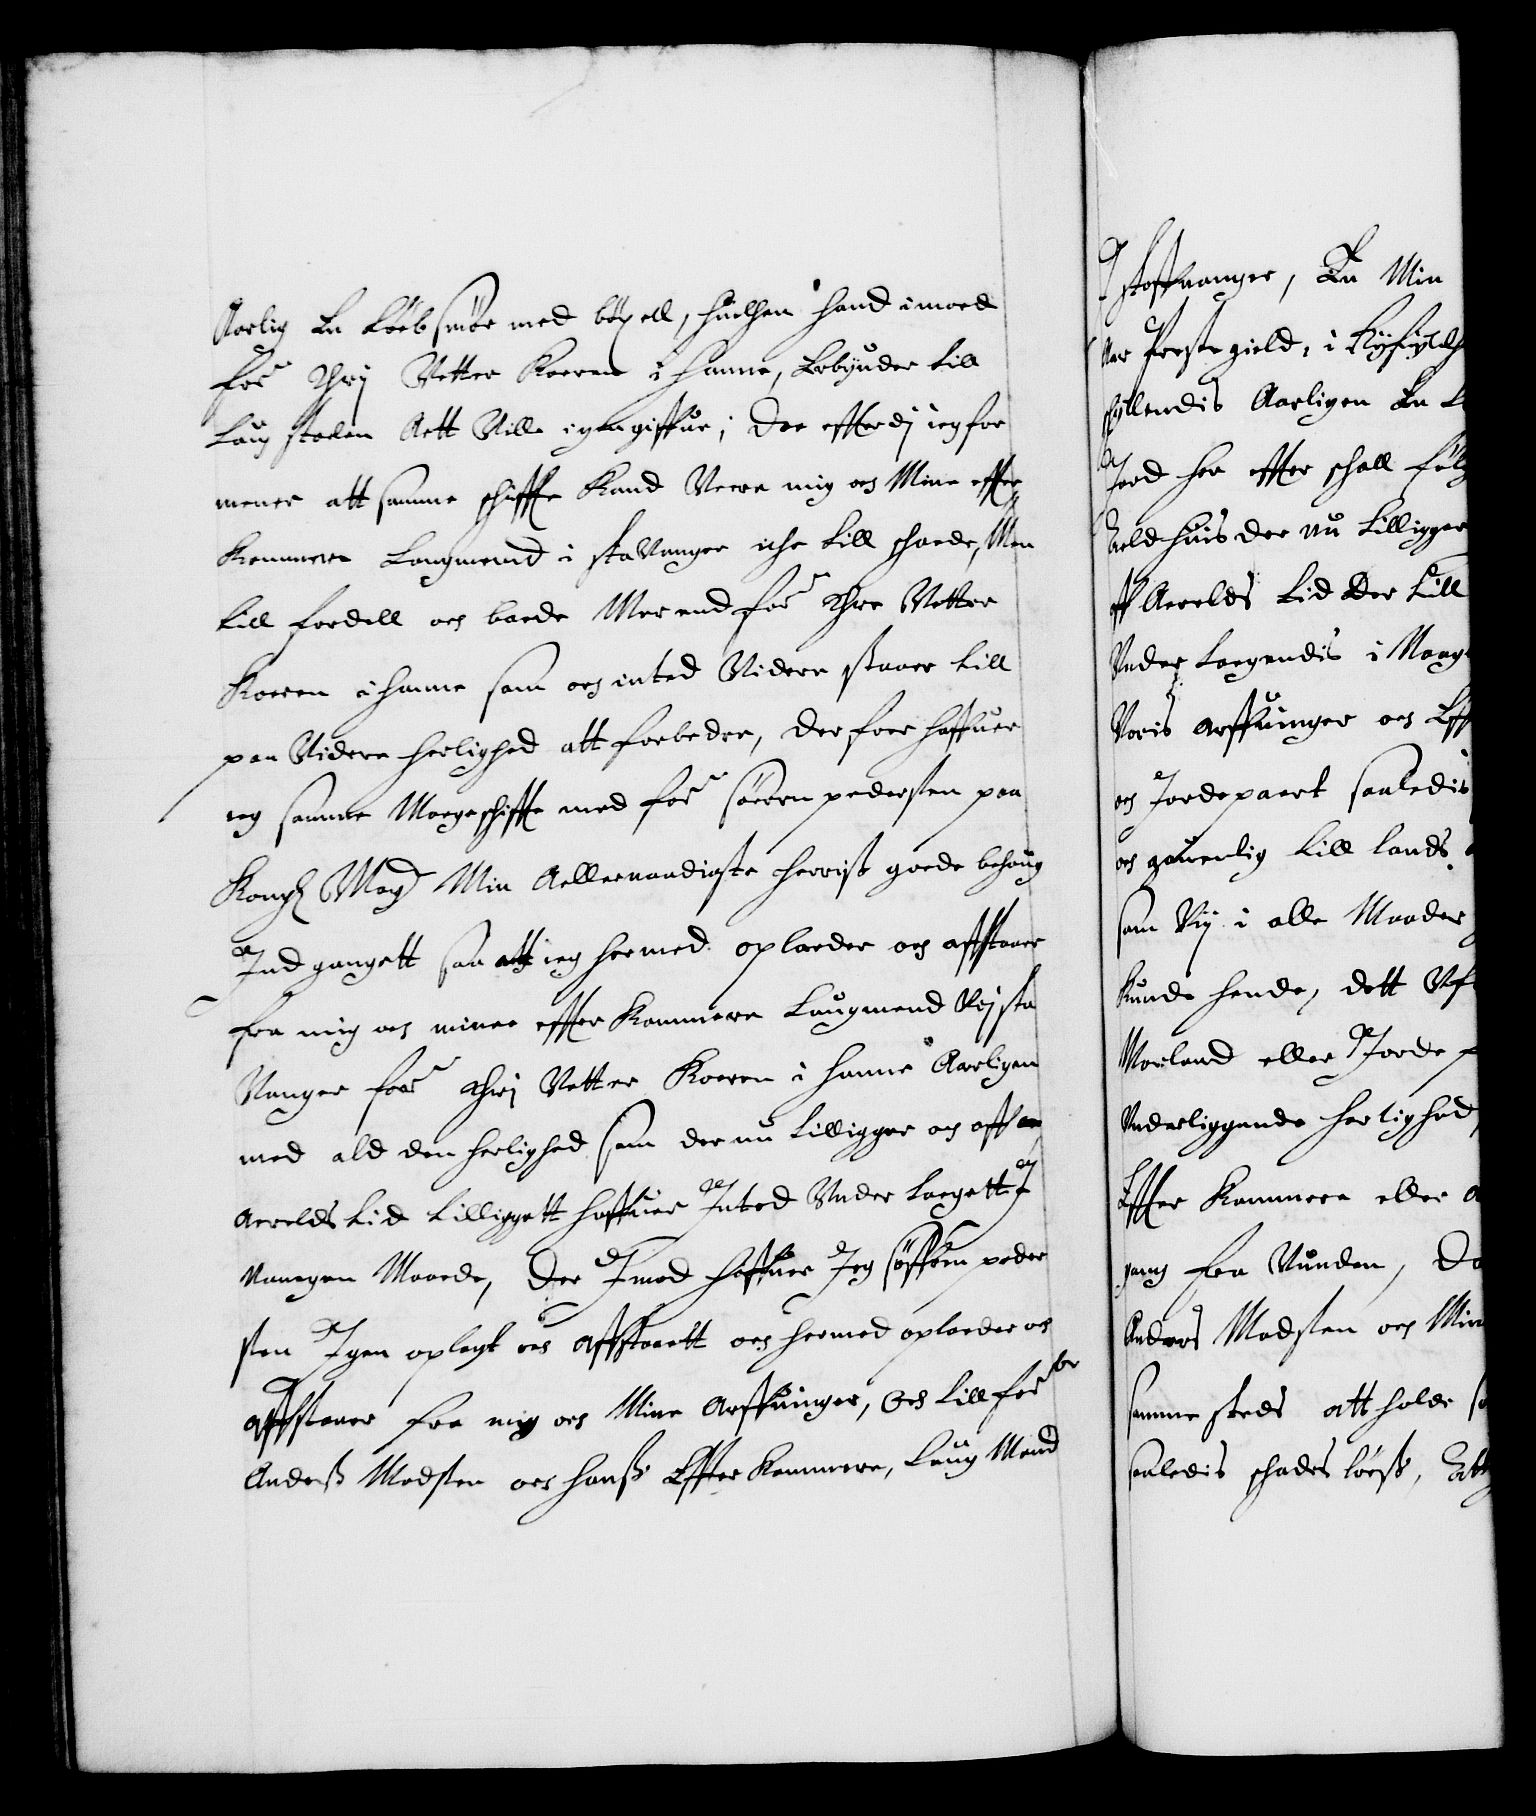 Aarlig En Löeb smör med böxell, huilchen hand imoed
for:ne thrj Vetter Koeren i Hanne, Erbyuder till
Laug stolen Aett Ville igengiffue, Doe effterdj ieg for
mener att samme schiffte Kand Veere mig och Mine effter
Kommere Laugmend i staVanger iche till schaede, Men
till fordell och baede Mer end for:ne thre Vetter
Koeren i Hanne som och inted Videre staaer till
paa Videre herlighed att forbedre, Derfoer haffuer
ieg samme Mageschiffte med for:ne sörren pedersten paa
Kong: May:tt Min Aellernaadigste herris goede behaug
Ind gangett saa att ieg hermed oplaeder och affstaaer
fra mig och minee effter Kommere Laugmend Vdj sta
Vanger for:ne thrj Vetter Koeren i Hanne Aarligen
med ald den herlighed som der nu tilligger och aff
Aerelds tid tilliggett haffuer Inted Vnder taegett I
Naaegen Maade, Der Imod haffuer Ieg söffren peder
sten Igen oplagt och affstaaett och hermed oplaeder och
affstaaer fra mig och Mine Arffuinger, Och till for:ne
Anders Madsten och hanss Effter Kommere, Laug Mend
I staffuanger, En Min
Preste gield, i Ryfylch
schyllendis Aarligen En
Jord her effter schall föl
huis der nu tilligger
aff Aerelds tid der till
Vnder taegendis i Naag
Voris Arffuinger och Eff
och Jordepaert saaledis
och gauenlig till lands
som Vij i alle Maader
Kunde hende, dett
Morland eller Jorde
Vnderliggende herlighed
Effter Kommere eller
gang fra Vunden, Da
Anders Madsten och Min
samme steds att holde
saaledis schades löess, Att